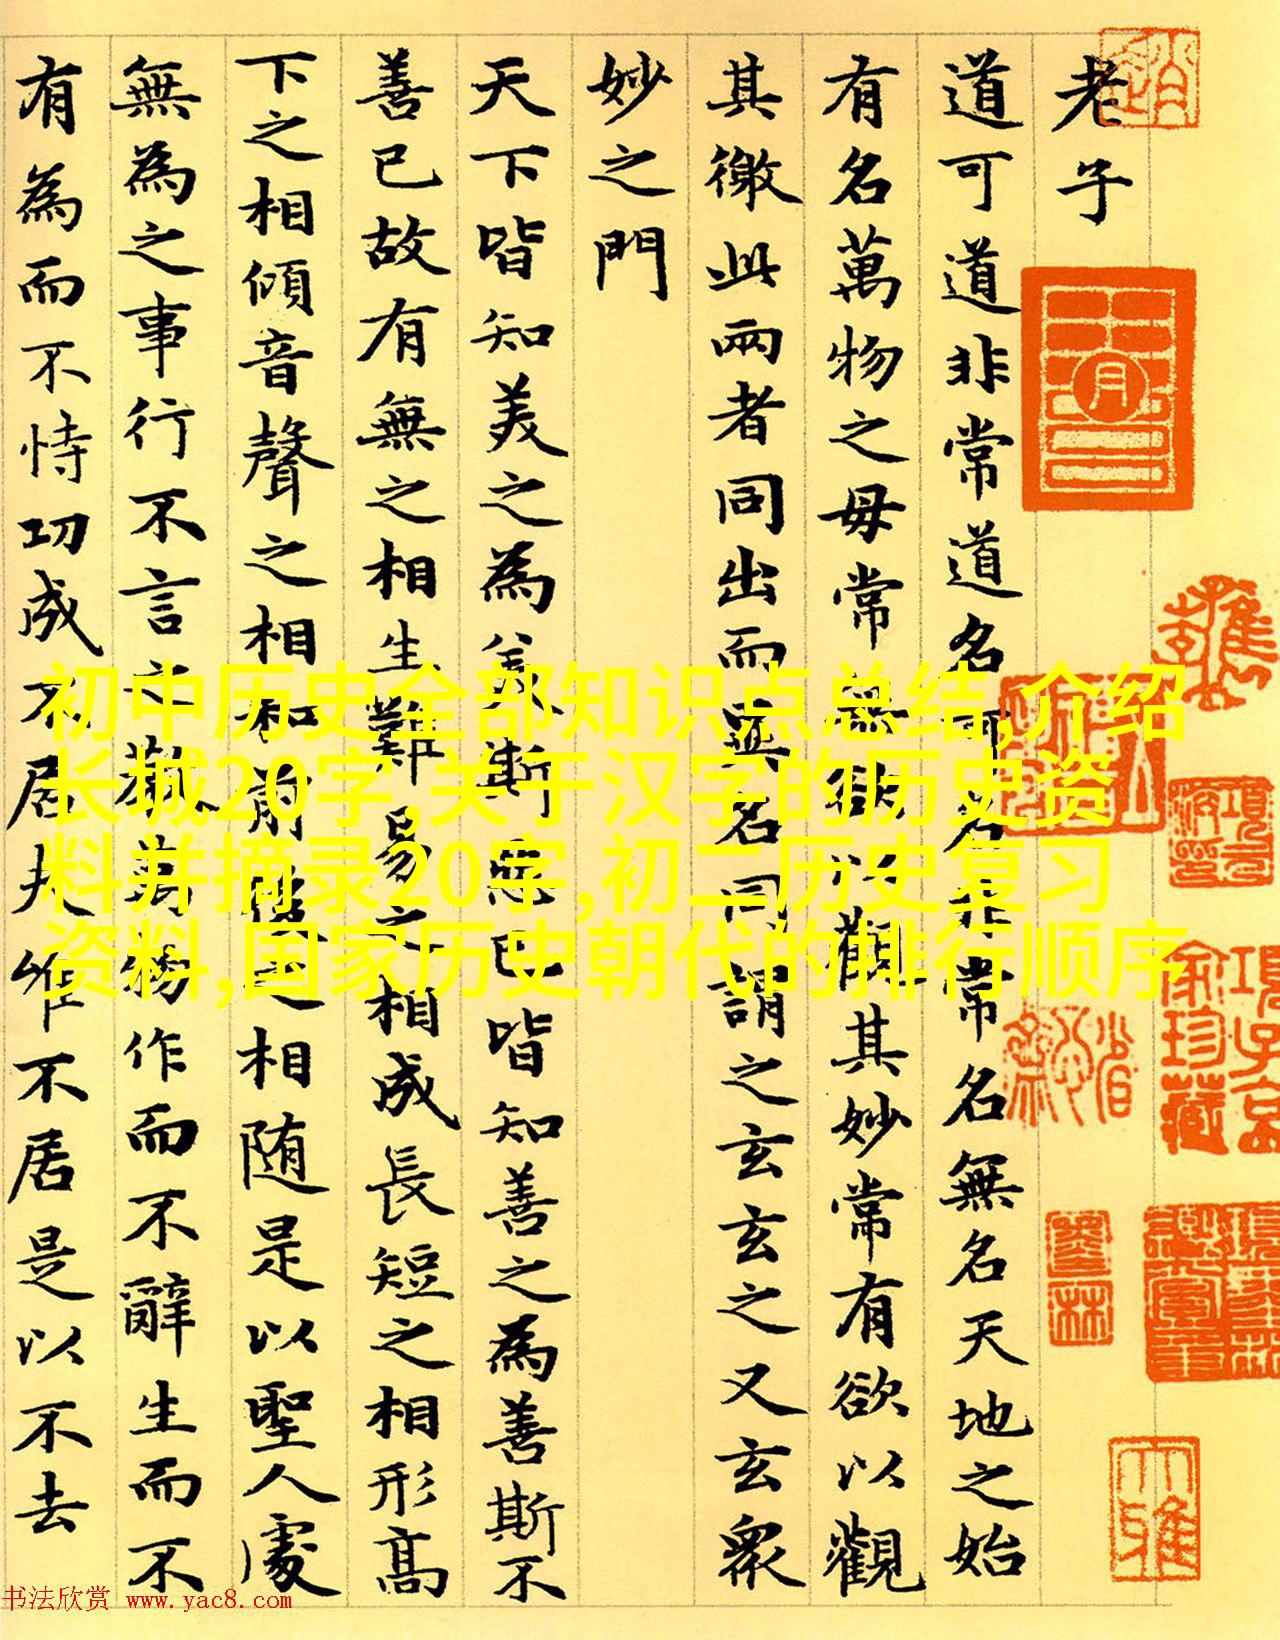 老子
道可道非常道名可名非常名無名天地之始
有名萬物之母常無欲以觀其妙常有欲以觀
其徼此兩者同出而異名同謂之玄玄之又玄衆
妙之門
天下皆知美之為美斯惡已皆知善之為善斯不
善已故有無之相生難易之相成長短之相形高
下之相傾音聲之相和前後之相随是以聖人處
無為之事行不言之教萬物作而不辭生而不
有為而不恃功成不居夫惟不居是以不去
初中历史全部知识点总结,介绍
长城20字,关于汉字的历史资
料并摘录20字,初二历史复习
资料,国家历史朝代的排行顺序
項子京家珍藏
大雅
书法欣赏 www.yac8.com